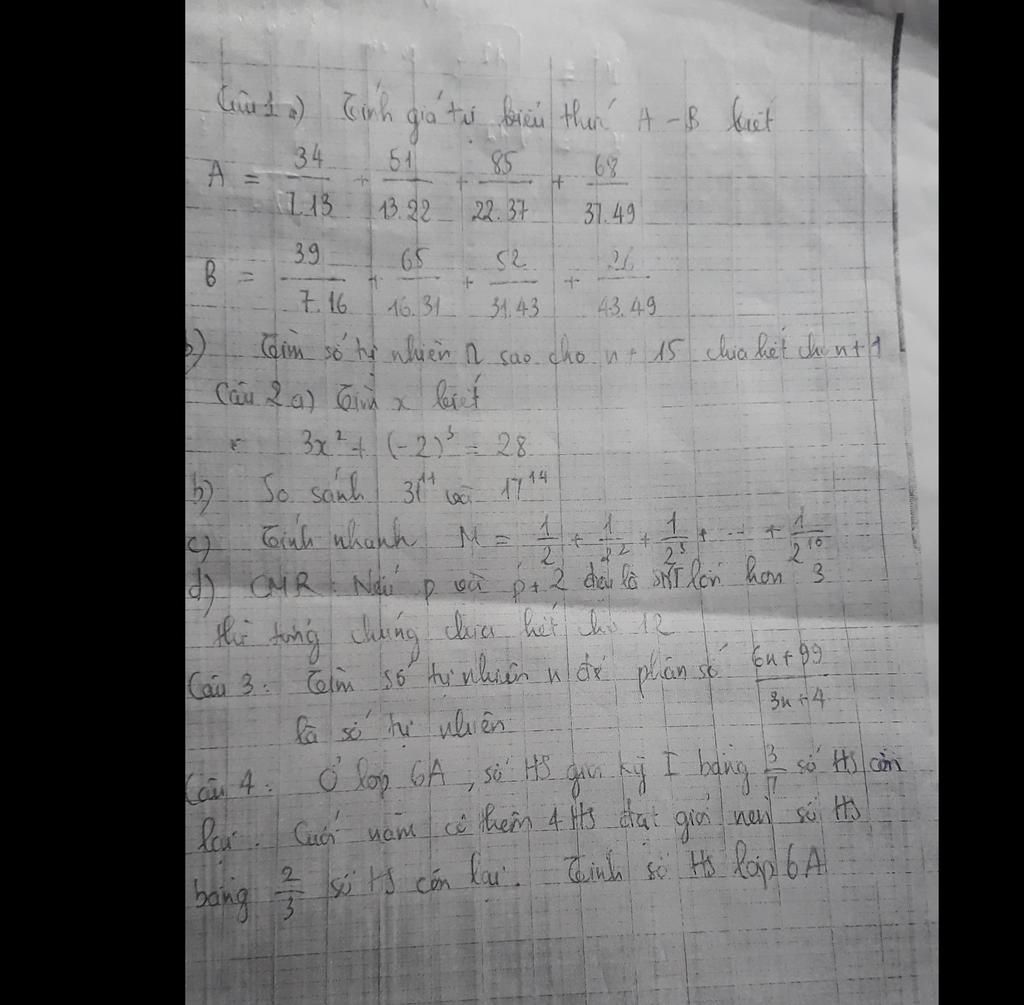 Câu 1 a) Tính giá trị biểu thức A - B biết
A = 34/7.13 + 51/13.22 + 85/22.37 + 68/37.49
B = 39/7.16 + 65/16.31 + 52/31.43 + 26/43.49
b) Tìm số tự nhiên n sao cho n + 15 chia hết cho n + 1
Câu 2 a) Tìm x biết
3x² + (-2)³ = 28
b) So sánh 31¹¹ và 17¹⁴
c) Tính nhanh M = 1/2 + 1/2² + 1/2³ + ... + 1/2¹⁰
d) CMR: Nếu p và p + 2 đều là SNT lớn hơn 3
thì tổng chúng chia hết cho 12
Câu 3: Tìm số tự nhiên n để phân số (6n + 99)/(3n + 4)
là số tự nhiên
Câu 4: Ở lớp 6A, số HS giỏi kỳ I bằng 3/7 số HS còn
lại. Cuối năm có thêm 4 HS đạt giỏi nên số HS
bằng 2/3 số HS còn lại. Tính số HS lớp 6A